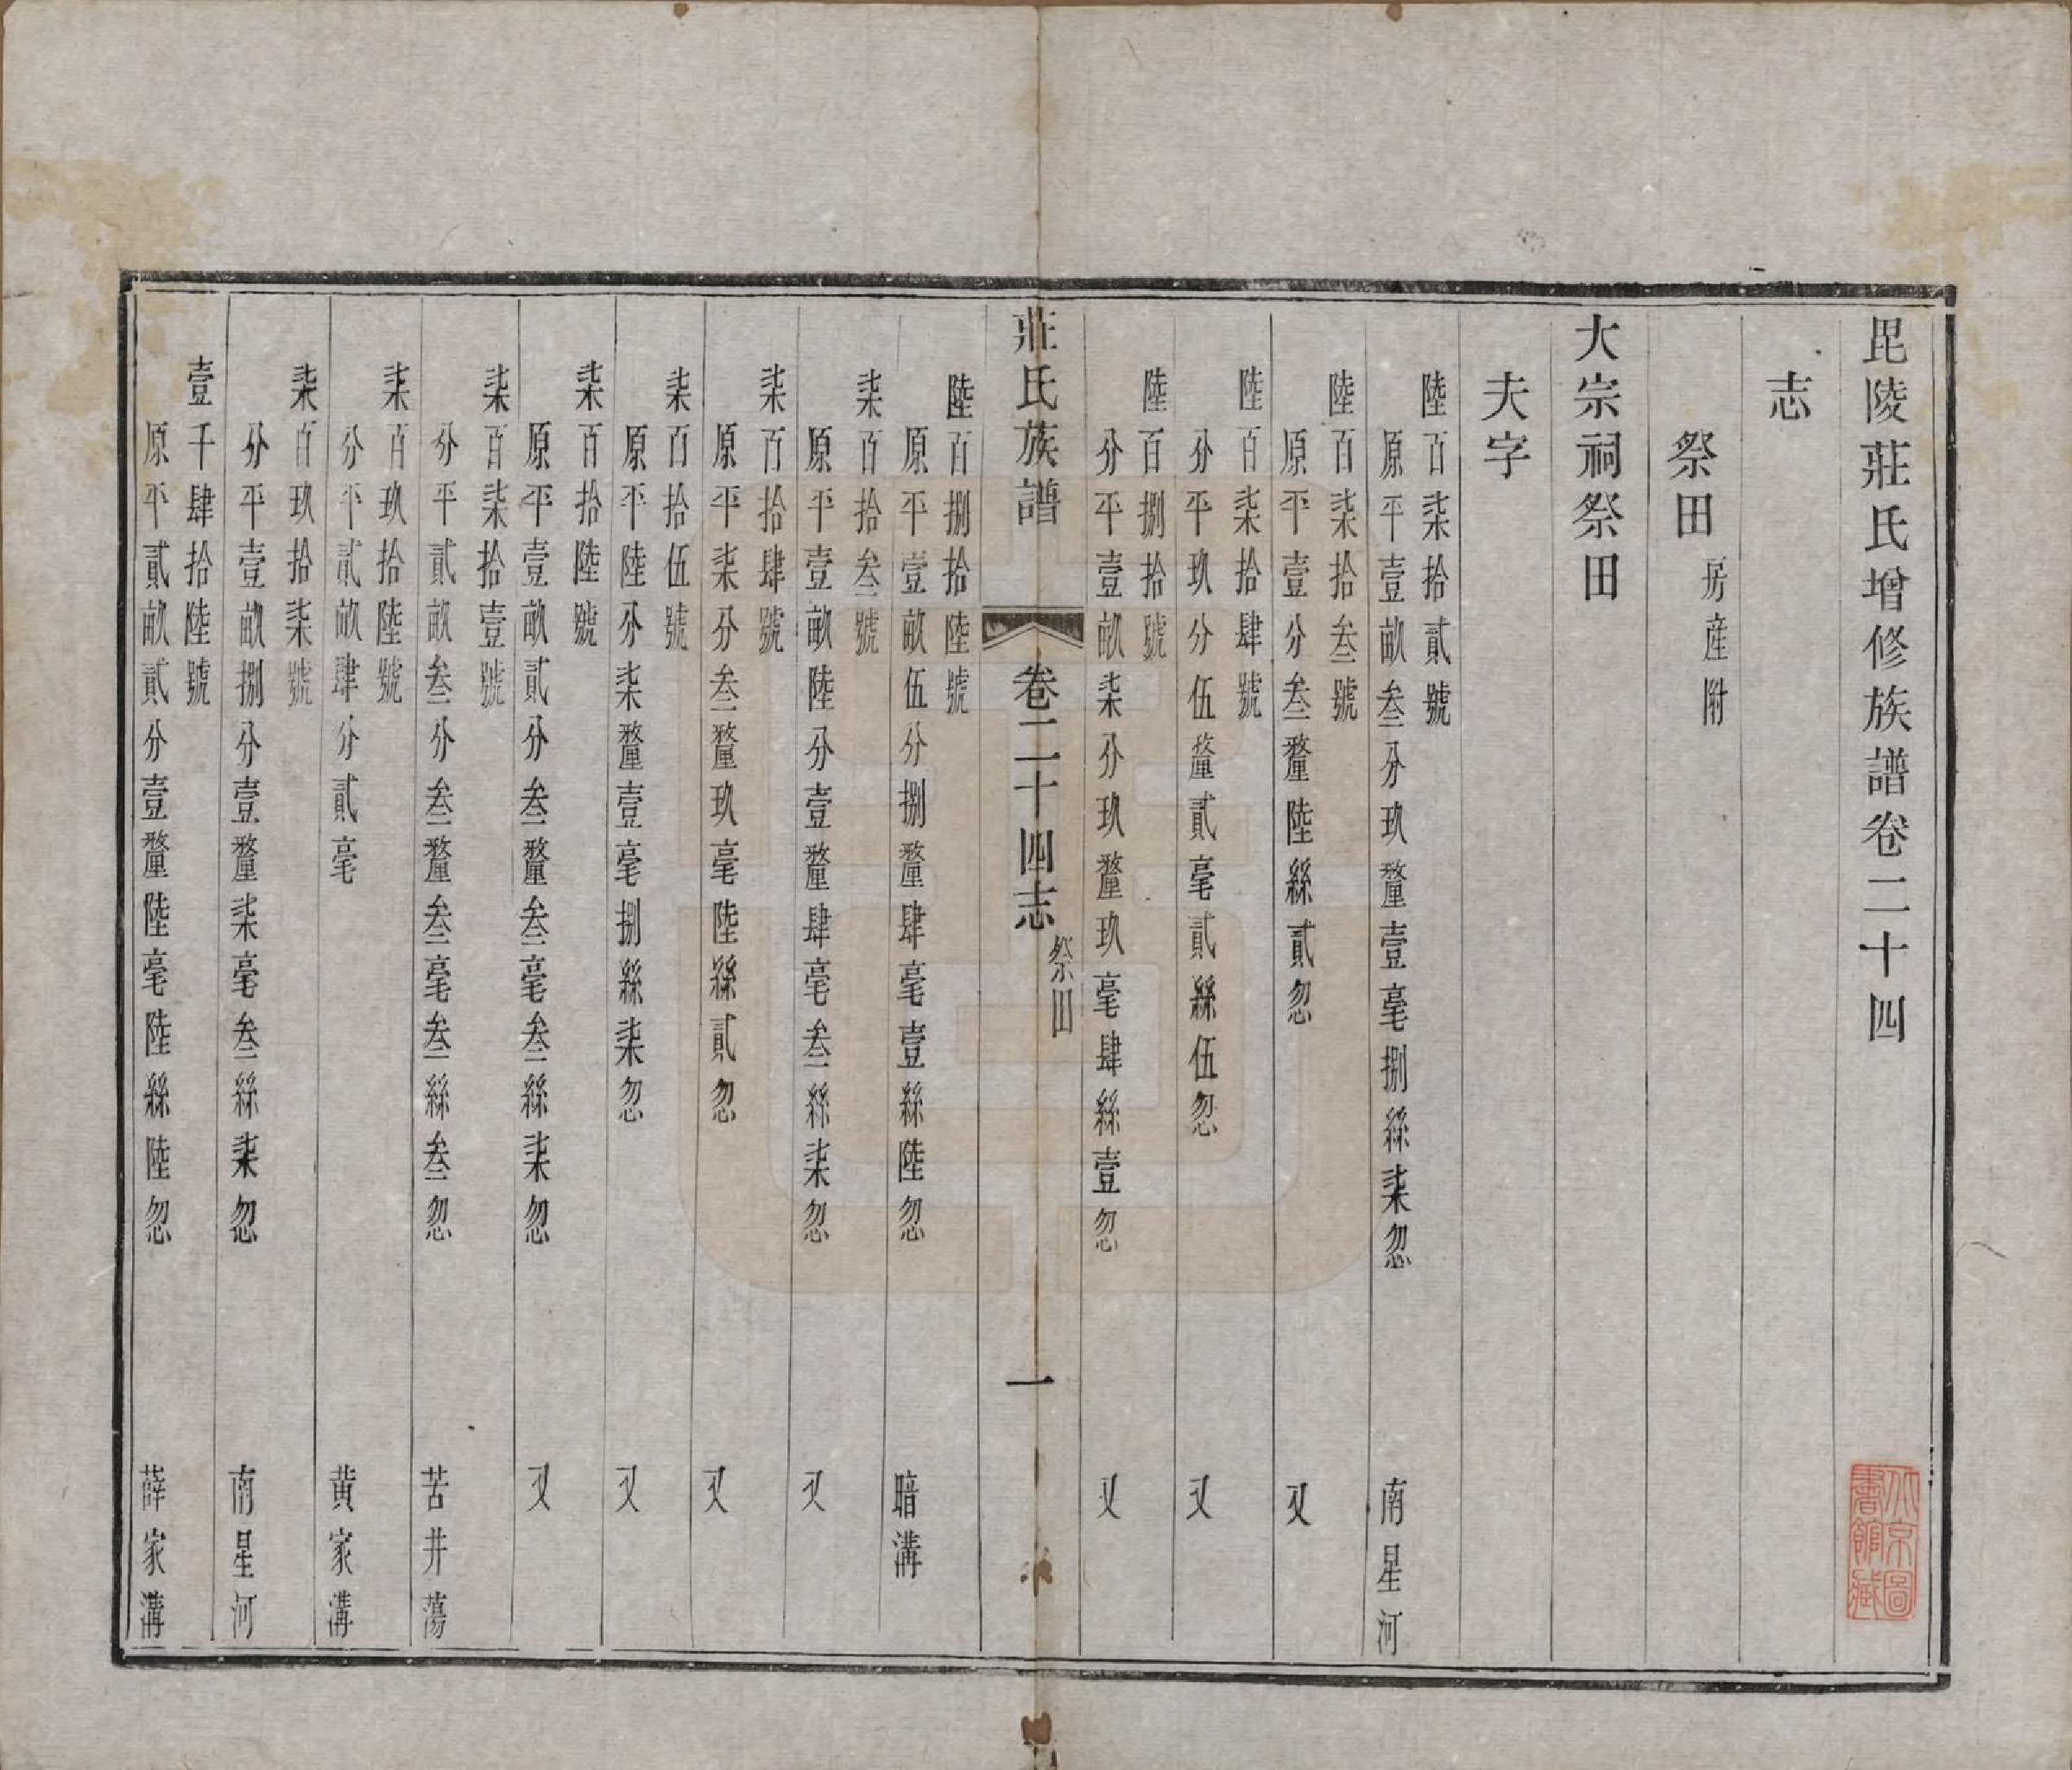 毘陵莊氏增修族譜卷二十四
志
祭田房産附
大宗祠祭田
夫字
陸百柒拾貳號
原平壹畝叁分玖釐壹毫捌絲柒忽　南星河
陸百柒拾叁號
原平壹分叁釐陸絲貳忽　又
陸百柒拾肆號
分平玖分伍釐貳毫貳絲伍忽　又
陸百捌拾號
分平壹畝柒分玖釐玖毫肆絲壹忽　又
莊氏族譜　卷二十四志　祭田　一
陸百捌拾陸號
原平壹畝伍分捌釐肆毫壹絲陸忽　暗溝
柒百拾叁號
原平壹畝陸分壹釐肆毫叁絲柒忽　又
柒百拾肆號
原平柒分叁釐玖毫陸絲貳忽　又
柒百拾伍號
原平陸分柒釐壹毫捌絲柒忽　又
柒百拾陸號
原平壹畝貳分叁釐叁毫叁絲柒忽　又
柒百柒拾壹號
分平貳畝叁分叁釐叁毫叁絲叁忽　苦井蕩
柒百玖拾陸號
分平貳畝肆分貳毫　黄家溝
柒百玖拾柒號
分平壹畝捌分壹釐柒毫叁絲柒忽　南星河
壹千肆拾陸號
原平貳畝貳分壹釐陸毫陸絲陸忽　薛家溝
北京圖書館藏